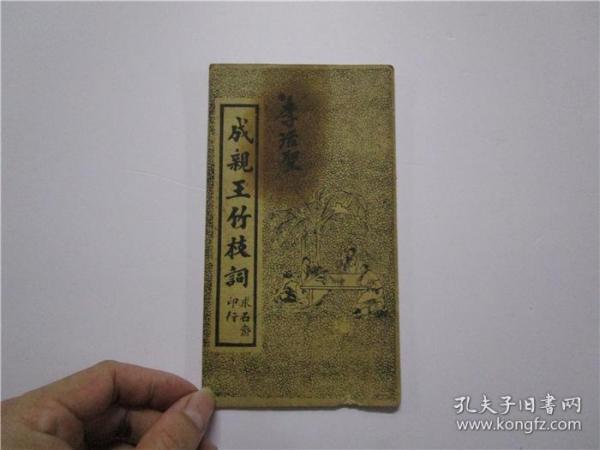 成親王竹枝詞
求石齋
印行
李治聖
孔夫子旧书网
www.kongfz.com